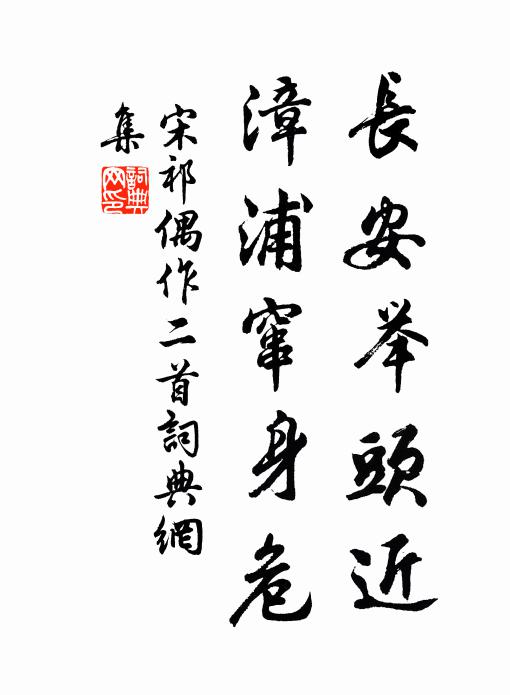 長安举頭近
漳浦窜身危
宋祁偶作二首詞典網
集
詞典网印